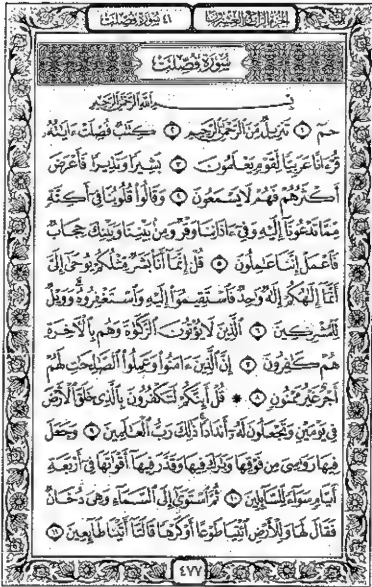 الجزء الرابع والعشرون ٤١ سورة فصلت
سُورَةُ فُصِّلَتْ
بِسْمِ اللَّهِ الرَّحْمَٰنِ الرَّحِيمِ
حمٓ ١ تَنزِيلٌ مِّنَ ٱلرَّحْمَٰنِ ٱلرَّحِيمِ ٢ كِتَٰبٌ فُصِّلَتْ ءَايَٰتُهُۥ
قُرْءَانًا عَرَبِيًّا لِّقَوْمٍ يَعْلَمُونَ ٣ بَشِيرًا وَنَذِيرًا فَأَعْرَضَ
أَكْثَرُهُمْ فَهُمْ لَا يَسْمَعُونَ ٤ وَقَالُوا۟ قُلُوبُنَا فِىٓ أَكِنَّةٍ
مِّمَّا تَدْعُونَآ إِلَيْهِ وَفِىٓ ءَاذَانِنَا وَقْرٌ وَمِنۢ بَيْنِنَا وَبَيْنِكَ حِجَابٌ
فَٱعْمَلْ إِنَّنَا عَٰمِلُونَ ٥ قُلْ إِنَّمَآ أَنَا۠ بَشَرٌ مِّثْلُكُمْ يُوحَىٰٓ إِلَىَّ
أَنَّمَآ إِلَٰهُكُمْ إِلَٰهٌ وَٰحِدٌ فَٱسْتَقِيمُوٓا۟ إِلَيْهِ وَٱسْتَغْفِرُوهُ وَوَيْلٌ
لِّلْمُشْرِكِينَ ٦ ٱلَّذِينَ لَا يُؤْتُونَ ٱلزَّكَوٰةَ وَهُم بِٱلْءَاخِرَةِ
هُمْ كَٰفِرُونَ ٧ إِنَّ ٱلَّذِينَ ءَامَنُوا۟ وَعَمِلُوا۟ ٱلصَّٰلِحَٰتِ لَهُمْ
أَجْرٌ غَيْرُ مَمْنُونٍ ٨ ۞ قُلْ أَئِنَّكُمْ لَتَكْفُرُونَ بِٱلَّذِى خَلَقَ ٱلْأَرْضَ
فِى يَوْمَيْنِ وَتَجْعَلُونَ لَهُۥٓ أَندَادًا ذَٰلِكَ رَبُّ ٱلْعَٰلَمِينَ ٩ وَجَعَلَ
فِيهَا رَوَٰسِىَ مِن فَوْقِهَا وَبَٰرَكَ فِيهَا وَقَدَّرَ فِيهَآ أَقْوَٰتَهَا فِىٓ أَرْبَعَةِ
أَيَّامٍ سَوَآءً لِّلسَّآئِلِينَ ١٠ ثُمَّ ٱسْتَوَىٰٓ إِلَى ٱلسَّمَآءِ وَهِىَ دُخَانٌ
فَقَالَ لَهَا وَلِلْأَرْضِ ٱئْتِيَا طَوْعًا أَوْ كَرْهًا قَالَتَآ أَتَيْنَا طَآئِعِينَ ١١
٤٧٧